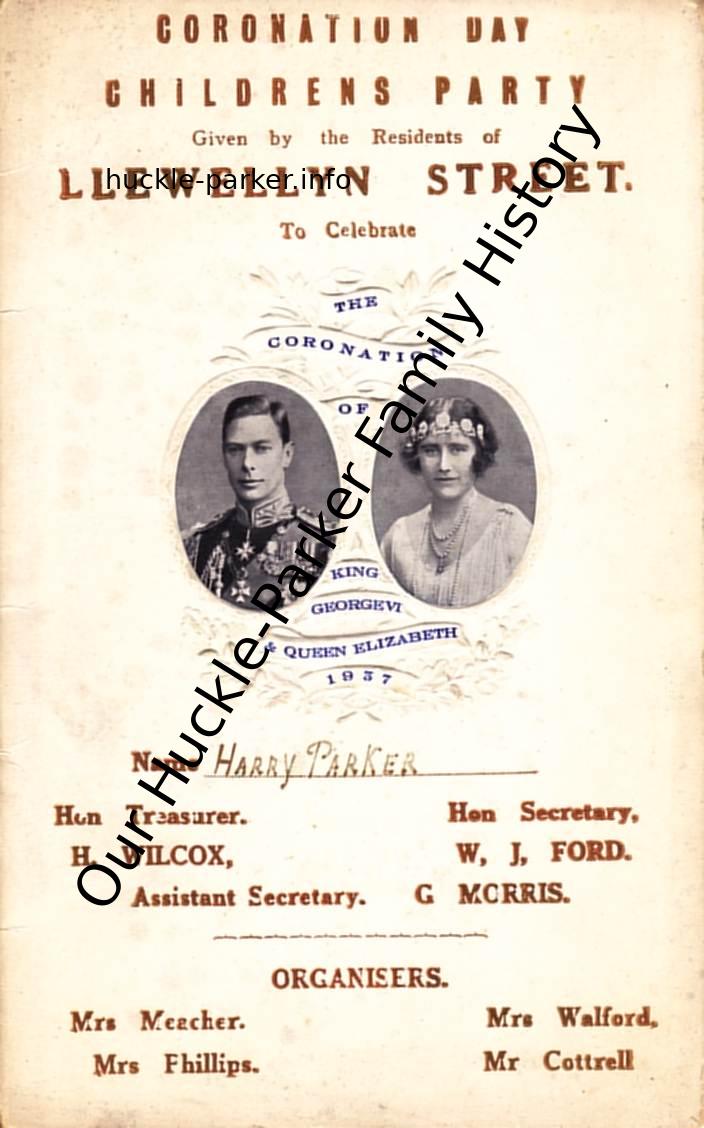 CORONATION DAY
CHILDRENS PARTY
Given by the Residents of
LLEWELLYN STREET.
huckle-parker.info
To Celebrate
THE
CORONATION
OF
KING
GEORGE VI
& QUEEN ELIZABETH
1937
Our Huckle-Parker Family History
Name HARRY PARKER
Hon Treasurer. Hon Secretary,
H. WILCOX, W, J, FORD.
Assistant Secretary. G MORRIS.
ORGANISERS.
Mrs Meacher. Mrs Walford,
Mrs Phillips. Mr Cottrell